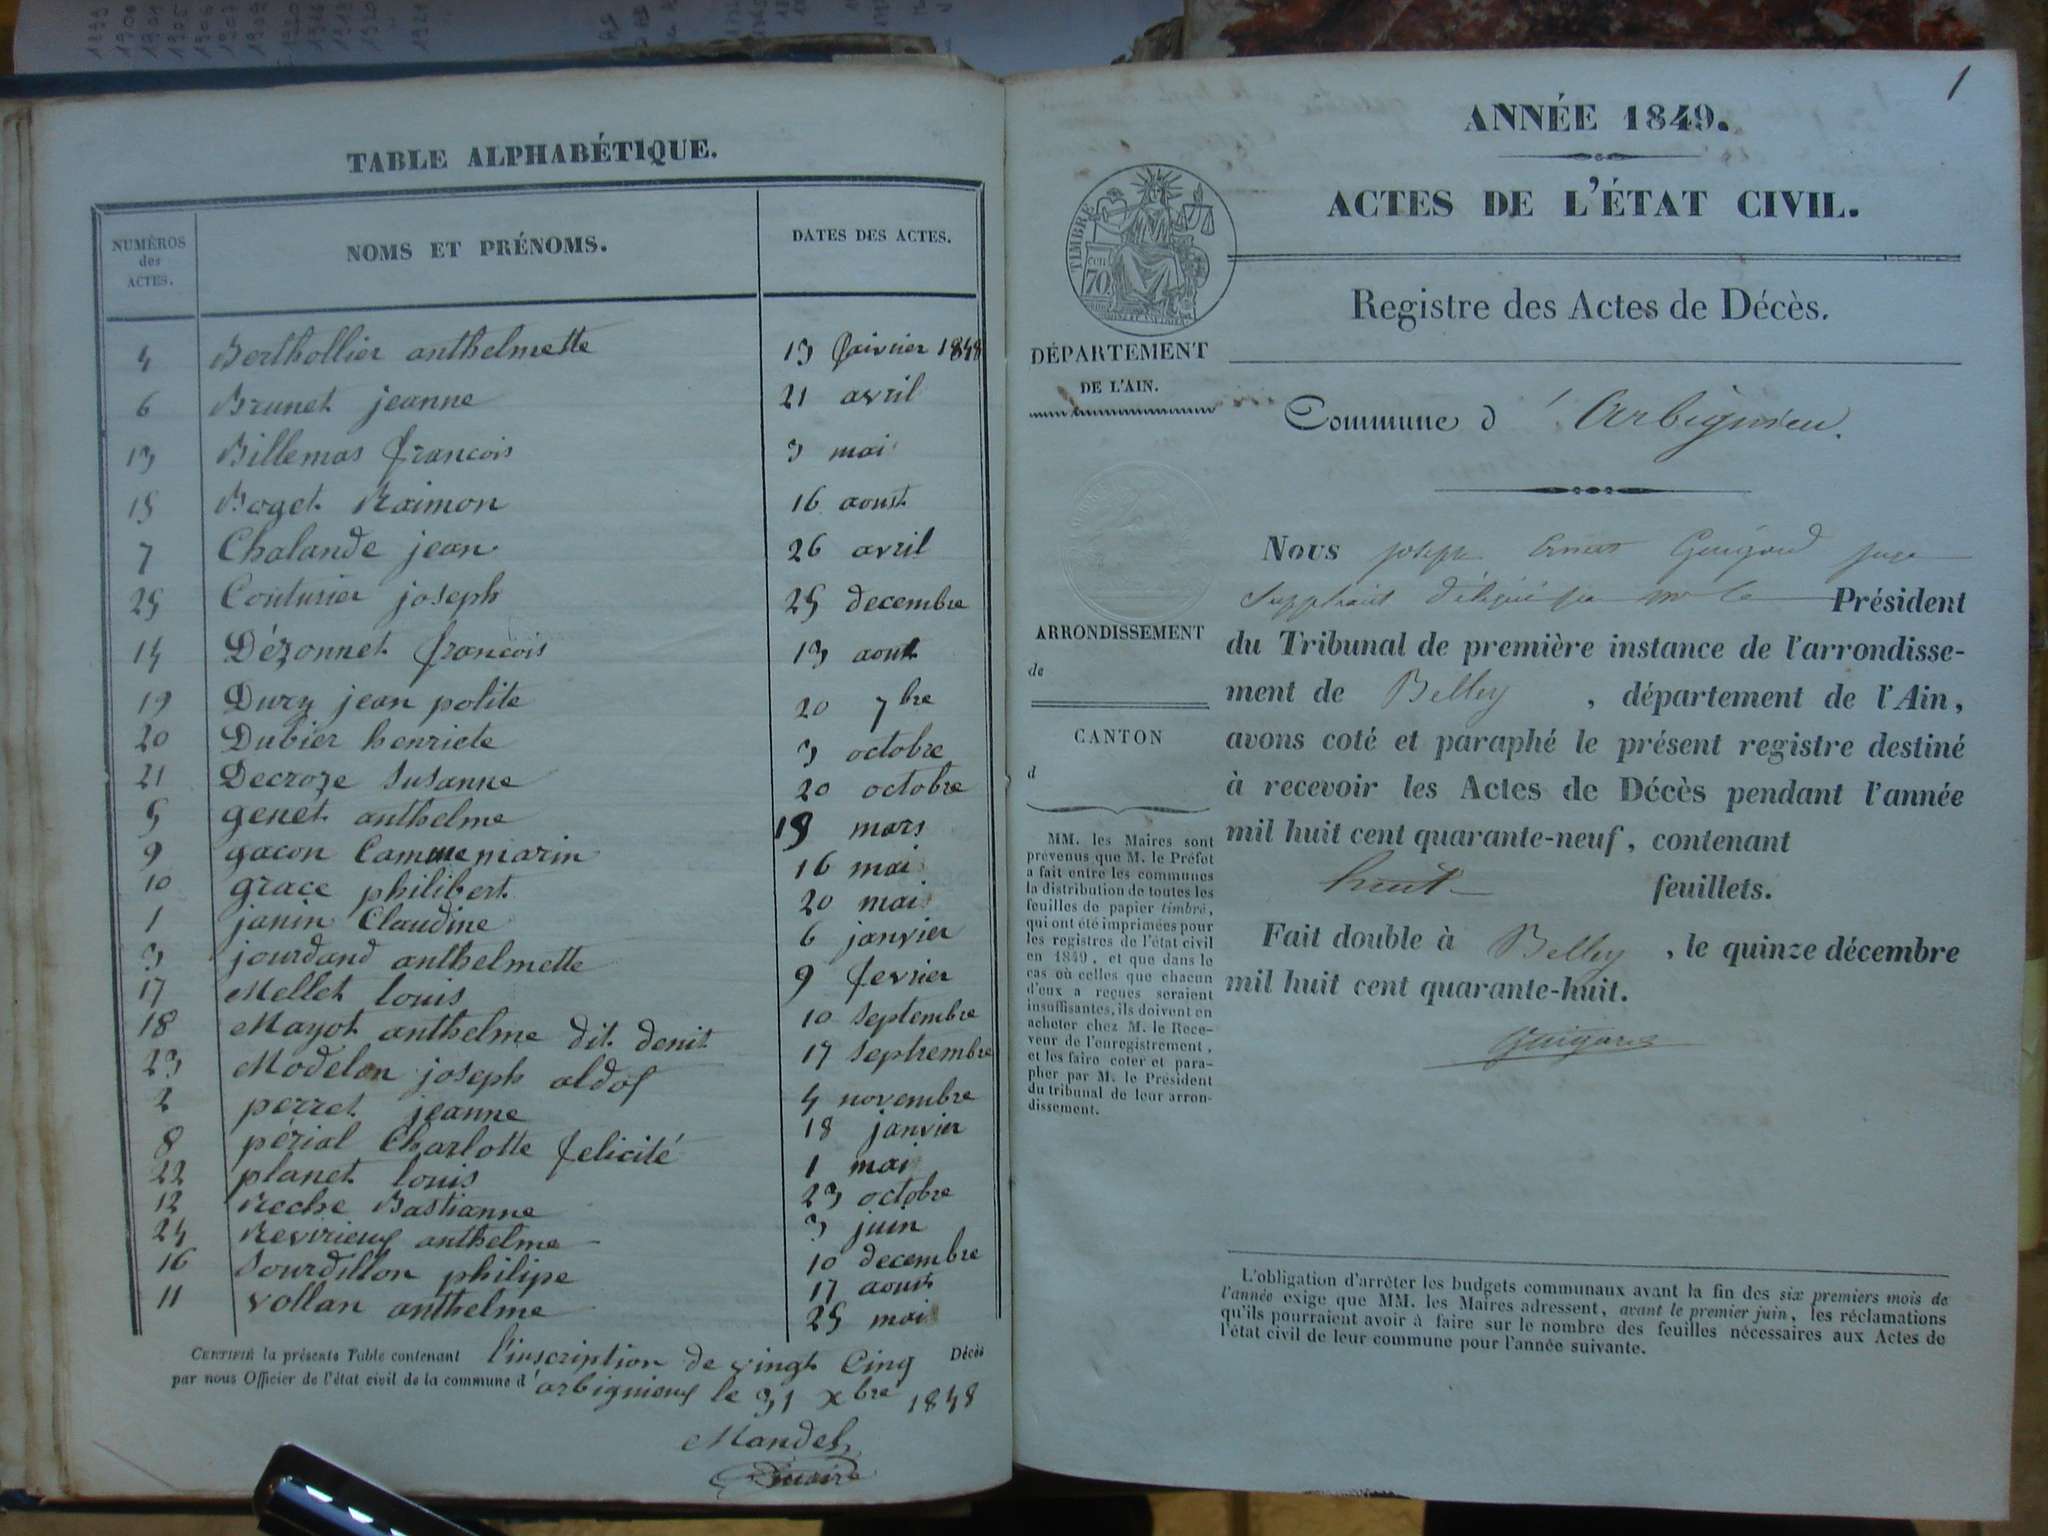 TABLE ALPHABÉTIQUE.
NUMÉROS des ACTES. NOMS ET PRÉNOMS. DATES DES ACTES.
4 Berthollier anthelmette 13 faivrier 1848
6 Brunet jeanne 21 avril
13 Billemas francois 3 mai
15 Boget Raimon 16 aoust
7 Chalande jean 26 avril
25 Couturier joseph 25 decembre
14 Dézonnet francois 13 aoust
19 Dury jean polite 20 7bre
20 Dubier henriete 3 octobre
21 Decroze susanne 20 octobre
5 genet anthelme 15 mars
9 gacon Camme marin 16 mai
10 grace philibert 20 mai
1 janin Claudine 6 janvier
3 jourdand anthelmette 9 fevrier
17 Mellet louis 10 septembre
18 Mayot anthelme dit denit 17 septrembre
23 Modelon joseph aldof 4 novembre
2 perret jeanne 18 janvier
8 périal Charlotte felicité 1 mai
22 planet louis 23 octobre
12 Reche Bastianne 3 juin
24 Revirieux anthelme 10 decembre
16 Sourdillon philipe 17 aoust
11 vollan anthelme 25 mai
CERTIFIÉ la présente Table contenant l'inscription de vingt Cinq Décès
par nous Officier de l'état civil de la commune d'arbignieux le 31 xbre 1848
Mandel
maire
1
ANNÉE 1849.
ACTES DE L'ÉTAT CIVIL.
TIMBRE
70 cen
Registre des Actes de Décès.
DÉPARTEMENT
DE L'AIN.
Commune d'Arbignieu.
ARRONDISSEMENT
de
CANTON
d
MM. les Maires sont
prévenus que M. le Préfet
a fait entre les communes
la distribution de toutes les
feuilles de papier timbré,
qui ont été imprimées pour
les registres de l'état civil
en 1849, et que dans le
cas où celles que chacun
d'eux a reçues seraient
insuffisantes, ils doivent en
acheter chez M. le Rece-
veur de l'enregistrement,
et les faire coter et para-
pher par M. le Président
du tribunal de leur arron-
dissement.
Nous joseph Ernest Guigard juge
Suppléant délégué par mr le Président
du Tribunal de première instance de l'arrondisse-
ment de Belley, département de l'Ain,
avons coté et paraphé le présent registre destiné
à recevoir les Actes de Décès pendant l'année
mil huit cent quarante-neuf, contenant
huit feuillets.
Fait double à Belley, le quinze décembre
mil huit cent quarante-huit.
Guigard
L'obligation d'arrêter les budgets communaux avant la fin des six premiers mois de
l'année exige que MM. les Maires adressent, avant le premier juin, les réclamations
qu'ils pourraient avoir à faire sur le nombre des feuilles nécessaires aux Actes de
l'état civil de leur commune pour l'année suivante.